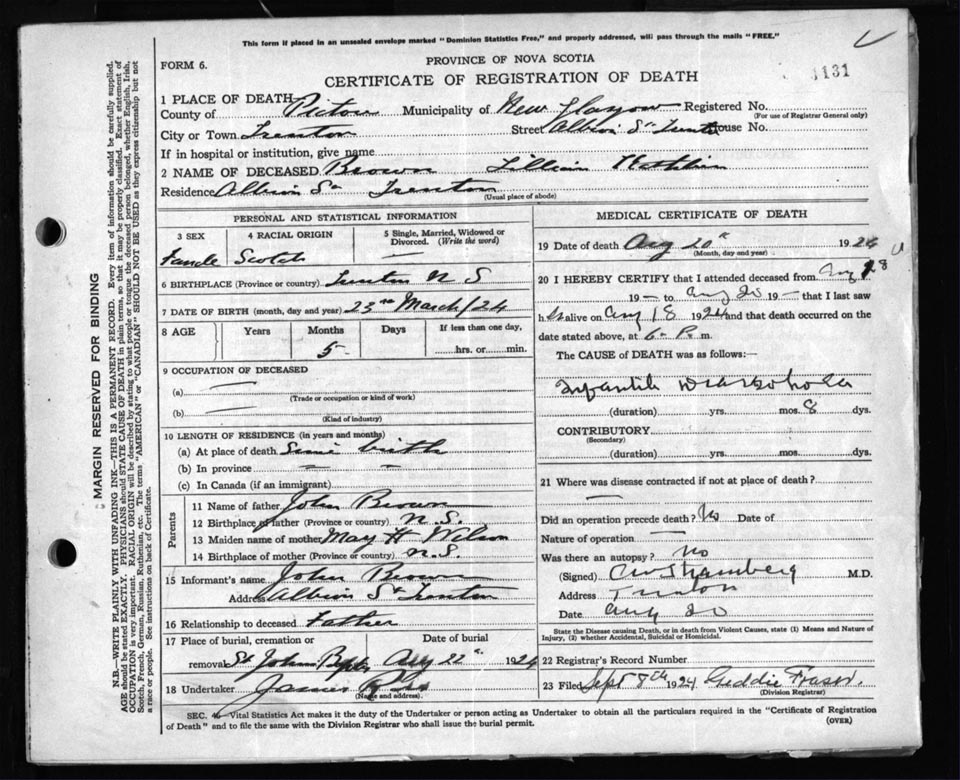 This form if placed in an unsealed envelope marked "Dominion Statistics Free," and properly addressed, will pass through the mails "FREE."
FORM 6.
PROVINCE OF NOVA SCOTIA
CERTIFICATE OF REGISTRATION OF DEATH
1131
1 PLACE OF DEATH
County of Pictou Municipality of New Glasgow Registered No.
(For use of Registrar General only)
City or Town Trenton Street Albion St House No.
If in hospital or institution, give name
2 NAME OF DECEASED Brown Lillian
Residence Albion St Trenton
(Usual place of abode)
PERSONAL AND STATISTICAL INFORMATION
3 SEX
4 RACIAL ORIGIN
5 Single, Married, Widowed or Divorced. (Write the word)
Female Scotch —
6 BIRTHPLACE (Province or country) Trenton N S
7 DATE OF BIRTH (month, day and year) 23rd March/24
8 AGE Years Months Days If less than one day,
5 hrs. or min.
9 OCCUPATION OF DECEASED
(a) —
(Trade or occupation or kind of work)
(b) —
(Kind of industry)
10 LENGTH OF RESIDENCE (in years and months)
(a) At place of death Since birth
(b) In province
(c) In Canada (if an immigrant)
Parents
11 Name of father John Brown
12 Birthplace of father (Province or country) N.S.
13 Maiden name of mother May H Wilson
14 Birthplace of mother (Province or country) N.S.
15 Informant's name John Brown
Address Albion St Trenton
16 Relationship to deceased Father
17 Place of burial, cremation or removal Date of burial
St John Aug 22 1924
18 Undertaker James
(Name and address)
MEDICAL CERTIFICATE OF DEATH
19 Date of death Aug 20th 1924
(Month, day and year)
20 I HEREBY CERTIFY that I attended deceased from Aug 18
19 — to Aug 20 19 — that I last saw
h alive on Aug 18 1924 and that death occurred on the
date stated above, at 6 P. m.
The CAUSE OF DEATH was as follows:—
Infantile
(duration) yrs. mos. 8 dys.
CONTRIBUTORY
(Secondary)
(duration) yrs. mos. dys.
21 Where was disease contracted if not at place of death?
—
Did an operation precede death? No Date of
Nature of operation —
Was there an autopsy? No
(Signed) M.D.
Address Trenton
Date Aug 20
State the Disease causing Death, or in death from Violent Causes, state (1) Means and Nature of Injury, (2) whether Accidental, Suicidal or Homicidal.
22 Registrar's Record Number
23 Filed Sept 8th 1924 Geddie Fraser.
(Division Registrar)
SEC. Vital Statistics Act makes it the duty of the Undertaker or person acting as Undertaker to obtain all the particulars required in the "Certificate of Registration
of Death" and to file the same with the Division Registrar who shall issue the burial permit.
(OVER)
MARGIN RESERVED FOR BINDING
N.B.—WRITE PLAINLY WITH UNFADING INK—THIS IS A PERMANENT RECORD. Every item of information should be carefully supplied.
AGE should be stated EXACTLY. PHYSICIANS should STATE CAUSE OF DEATH in plain terms, so that it may be properly classified. Exact statement of
OCCUPATION is very important. RACIAL ORIGIN will be described by stating to what people or tongue the deceased person belonged, whether English, Irish,
Scotch, French, German, Russian, Ruthenian, etc. The terms "AMERICAN" or "CANADIAN" SHOULD NOT BE USED as they express citizenship but not
a race or people. See instructions on back of Certificate.